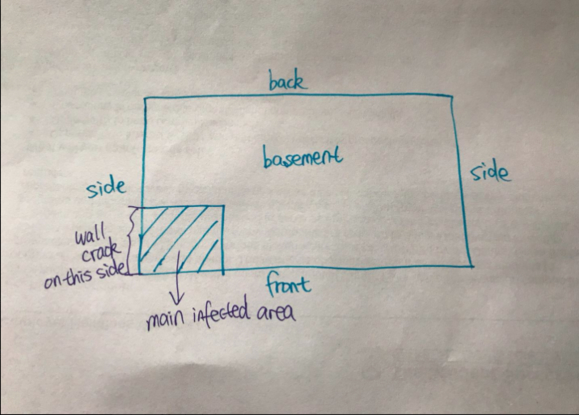 back
basement
side
side
wall
crack
on this side
front
main infected area